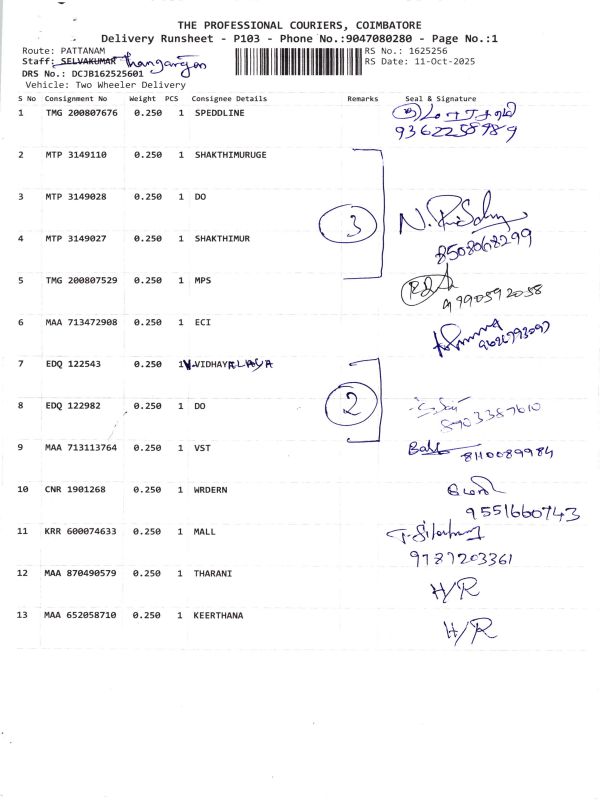 THE PROFESSIONAL COURIERS, COIMBATORE
Delivery Runsheet - P103 - Phone No.:9047080280 - Page No.:1
Route: PATTANAM RS No.: 1625256
Staff: SELVAKUMAR RS Date: 11-Oct-2025
DRS No.: DCJB162525601
Vehicle: Two Wheeler Delivery
S No Consignment No Weight PCS Consignee Details Remarks Seal & Signature
1 TMG 200807676 0.250 1 SPEDDLINE
9362258989
2 MTP 3149110 0.250 1 SHAKTHIMURUGE
3 MTP 3149028 0.250 1 DO
3
4 MTP 3149027 0.250 1 SHAKTHIMUR
8508068299
5 TMG 200807529 0.250 1 MPS
9790592058
6 MAA 713472908 0.250 1 ECI
7 EDQ 122543 0.250 1 V.VIDHAYALAYA
8 EDQ 122982 0.250 1 DO 2
8903387610
9 MAA 713113764 0.250 1 VST
8110089984
10 CNR 1901268 0.250 1 WRDERN
9551660743
11 KRR 600074633 0.250 1 MALL
9787203361
12 MAA 870490579 0.250 1 THARANI H/R
13 MAA 652058710 0.250 1 KEERTHANA H/R